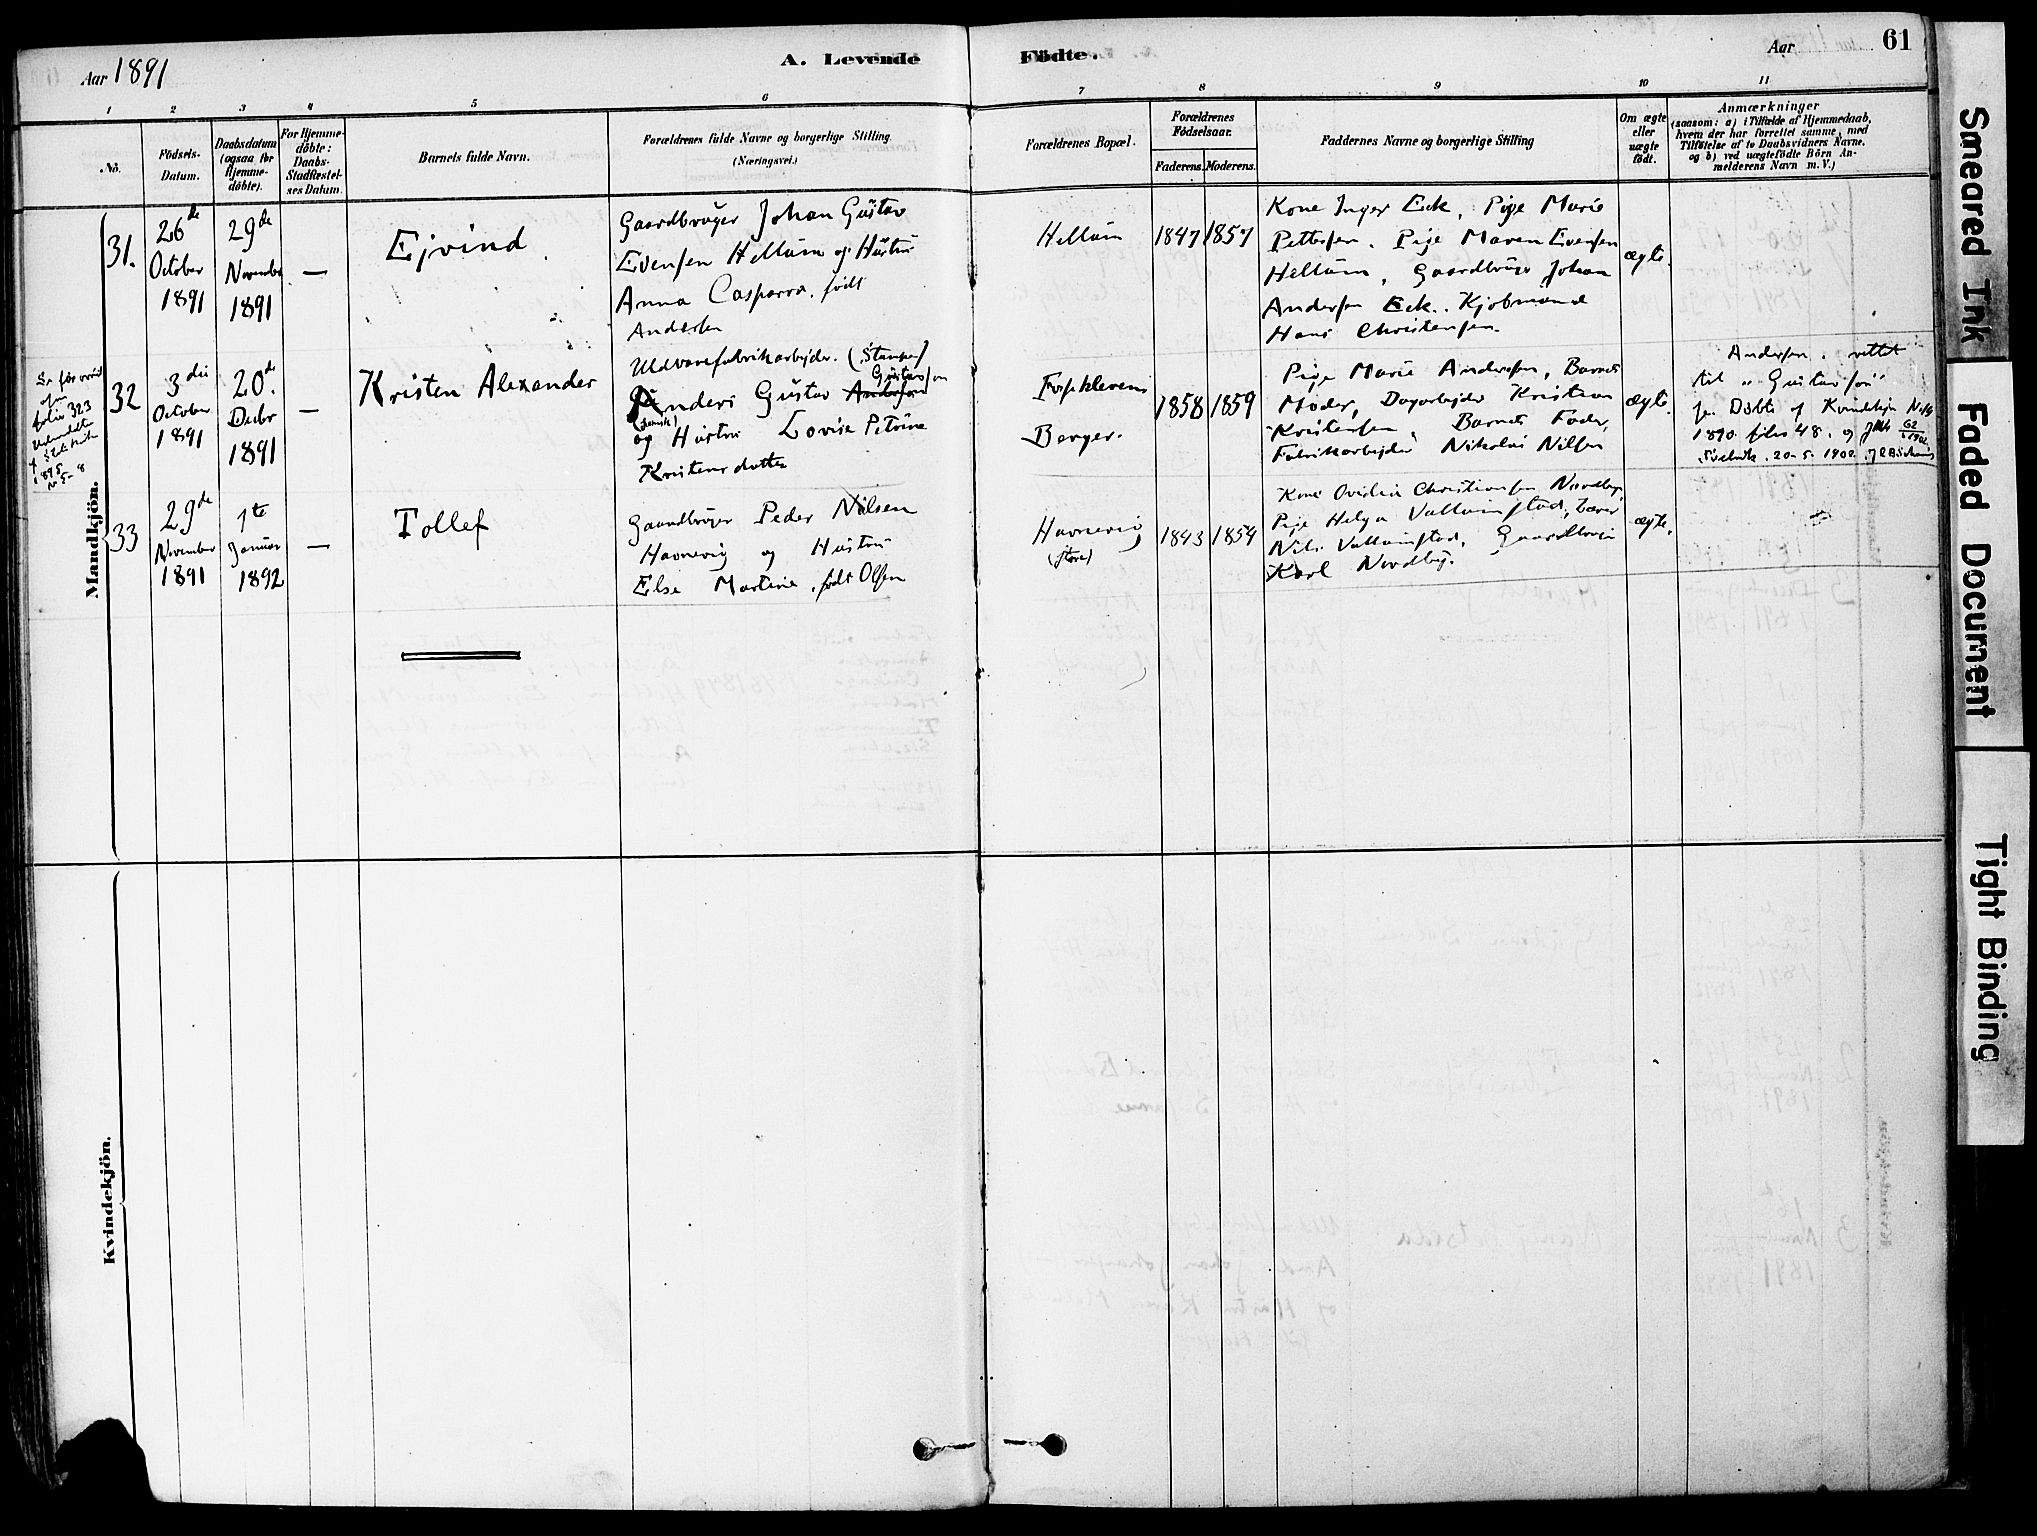 Aar 1891
A. Levende
Fødte.
Aar
61
1
2
3
4
5
6
7
8
9
10
11
No.
Fødsels-
Datum.
Daabsdatum
(ogsaa for
Hjemme-
døbte).
For Hjemme-
døbte:
Daabs-
Stadfæstel-
ses Datum.
Barnets fulde Navn.
Forældrenes fulde Navne og borgerlige Stilling
(Næringsvei.)
Forældrenes Bopæl.
Forældrenes
Fødselsaar.
Faderens.
Moderens.
Faddernes Navne og borgerlige Stilling
Om ægte
eller
uægte
født.
Anmærkninger
(saasom: a) i Tilfælde af Hjemmedaab,
hvem der har forrettet samme, med
Tilføielse af to Daabsvidners Navne,
og b) ved uægtefødte Børn An-
melderens Navn m. V.)
Mandkjön.
31.
26de
October
1891
29de
November
1891
—
Ejvind
Gaardbruger Johan Gustav
Evensen Hellum og Hustru
Anna Casparra, født
Andersen
Hellum
1847
1857
Kone Inger Eek, Pige Marie
Pettersen, Pige Maren Evensen
Hellum, Gaardbruger Johan
Andersen Eek, Kjøbmand
Hans Christensen.
ægte.
folio 323
1895
32
3die
October
1891
20de
Decbr
1891
—
Kristen Alexander
Uldvarefabrikarbejder (Stamper)
Gustavson
Anders Gustav Andersen
og Hustru Lovise Petrine
Kristensdatter
Fosseklevens
Berger.
1858
1859
Pige Marie Andersen, Barnets
Moder, Dagarbejder Kristian
Kristensen, Barnets Fader,
Fabrikarbejder Nikolai Nilsen
ægte.
Andersen, rettet
til "Gustavson"
1890 folio 48. og
20-5-1900.
33
29de
November
1891
1te
Januar
1892
—
Tollef
Gaardbruger Peder Nilsen
Havnevig og Hustru
Else Martine, født Olsen
Havnevig
(store)
1843
1854
Kone Ovidia Christiansen Nordby,
Pige Helga Vallumstad, Lærer
Nils Vallumstad, Gaardbruger
Karl Nordby.
ægte.
Kvindekjön.
Smeared Ink
Faded Document
Tight Binding